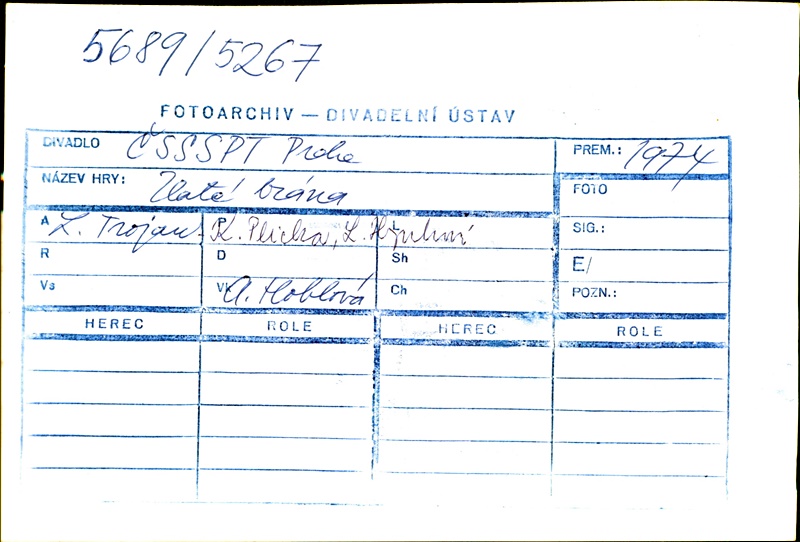 5689/5267
FOTOARCHIV — DIVADELNÍ ÚSTAV
DIVADLO ČSSSPT Praha PREM.: 1974
NÁZEV HRY: Zlatá brána FOTO
A L. Trojan K. Plicka, L. SIG.:
R D Sh E/
Vs A. Hoblová Ch POZN.:
HEREC ROLE HEREC ROLE